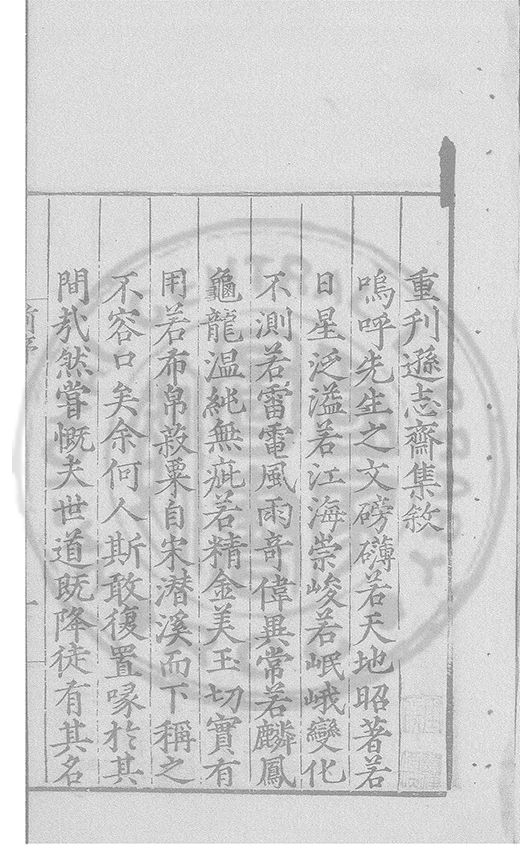 重刋遜志齋集敘
嗚呼先生之文磅礴若天地昭著若
日星泛溢若江海崇峻若岷峨變化
不測若雷電風雨奇偉異常若麟鳳
龜龍温純無疵若精金美玉切實有
用若布帛菽粟自宋潛溪而下稱之
不容口矣余何人斯敢復置喙於其
間㢤然嘗慨夫世道既降徒有其名